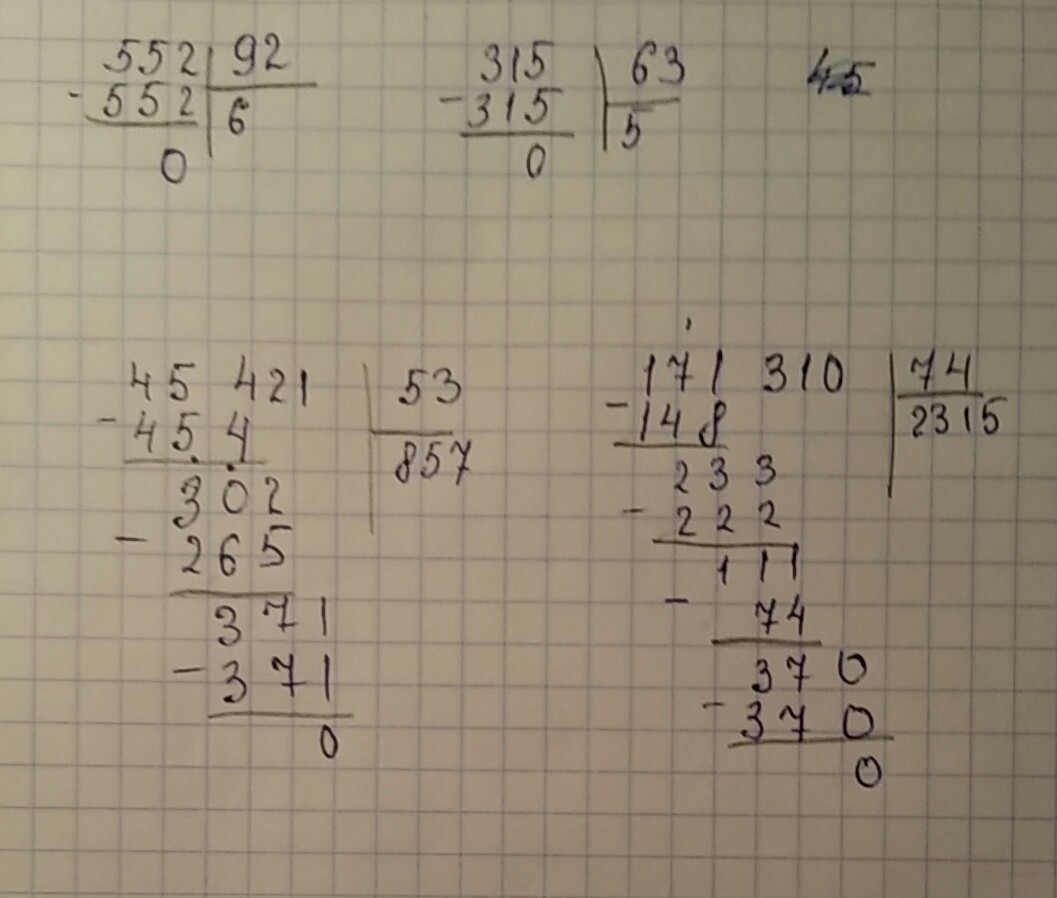 552 | 92
- 552 | 6
0
315 | 63
- 315 | 5
0
45
45 421 | 53
- 45 4 | 857
302
- 265
371
- 371
0
171 310 | 74
- 148 | 2315
233
- 222
111
- 74
370
- 370
0